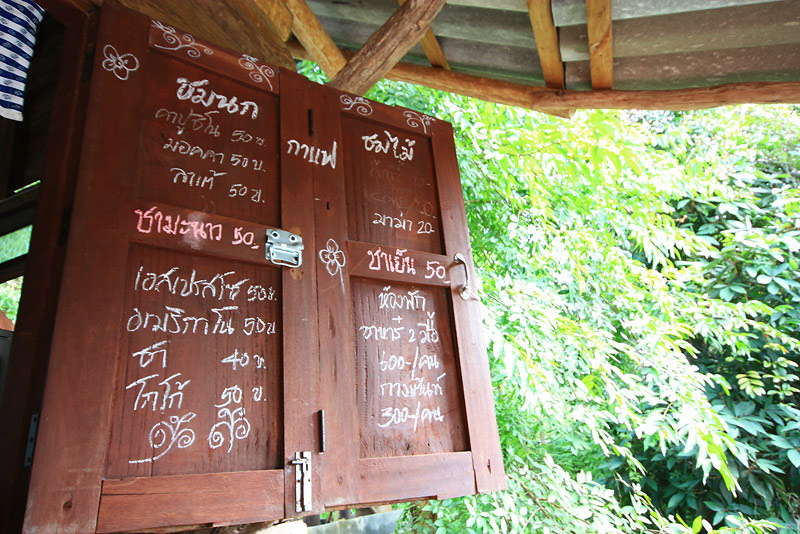 ชมนก
คาปูชิโน 50 บ.
มอคคา 50 บ.
ลาเต้ 50 บ.
ชามะนาว 50.
เอสเปรสโซ 50 บ.
อเมริกาโน 50 บ
ชา 40 บ.
โกโก้ 50 บ.
กาแฟ
ชมไม้
มาม่า 20.
ชาเย็น 50.
ห้องพัก
อาหาร 2 มื้อ
600-/คน
กางเต็นท์
300-/คน